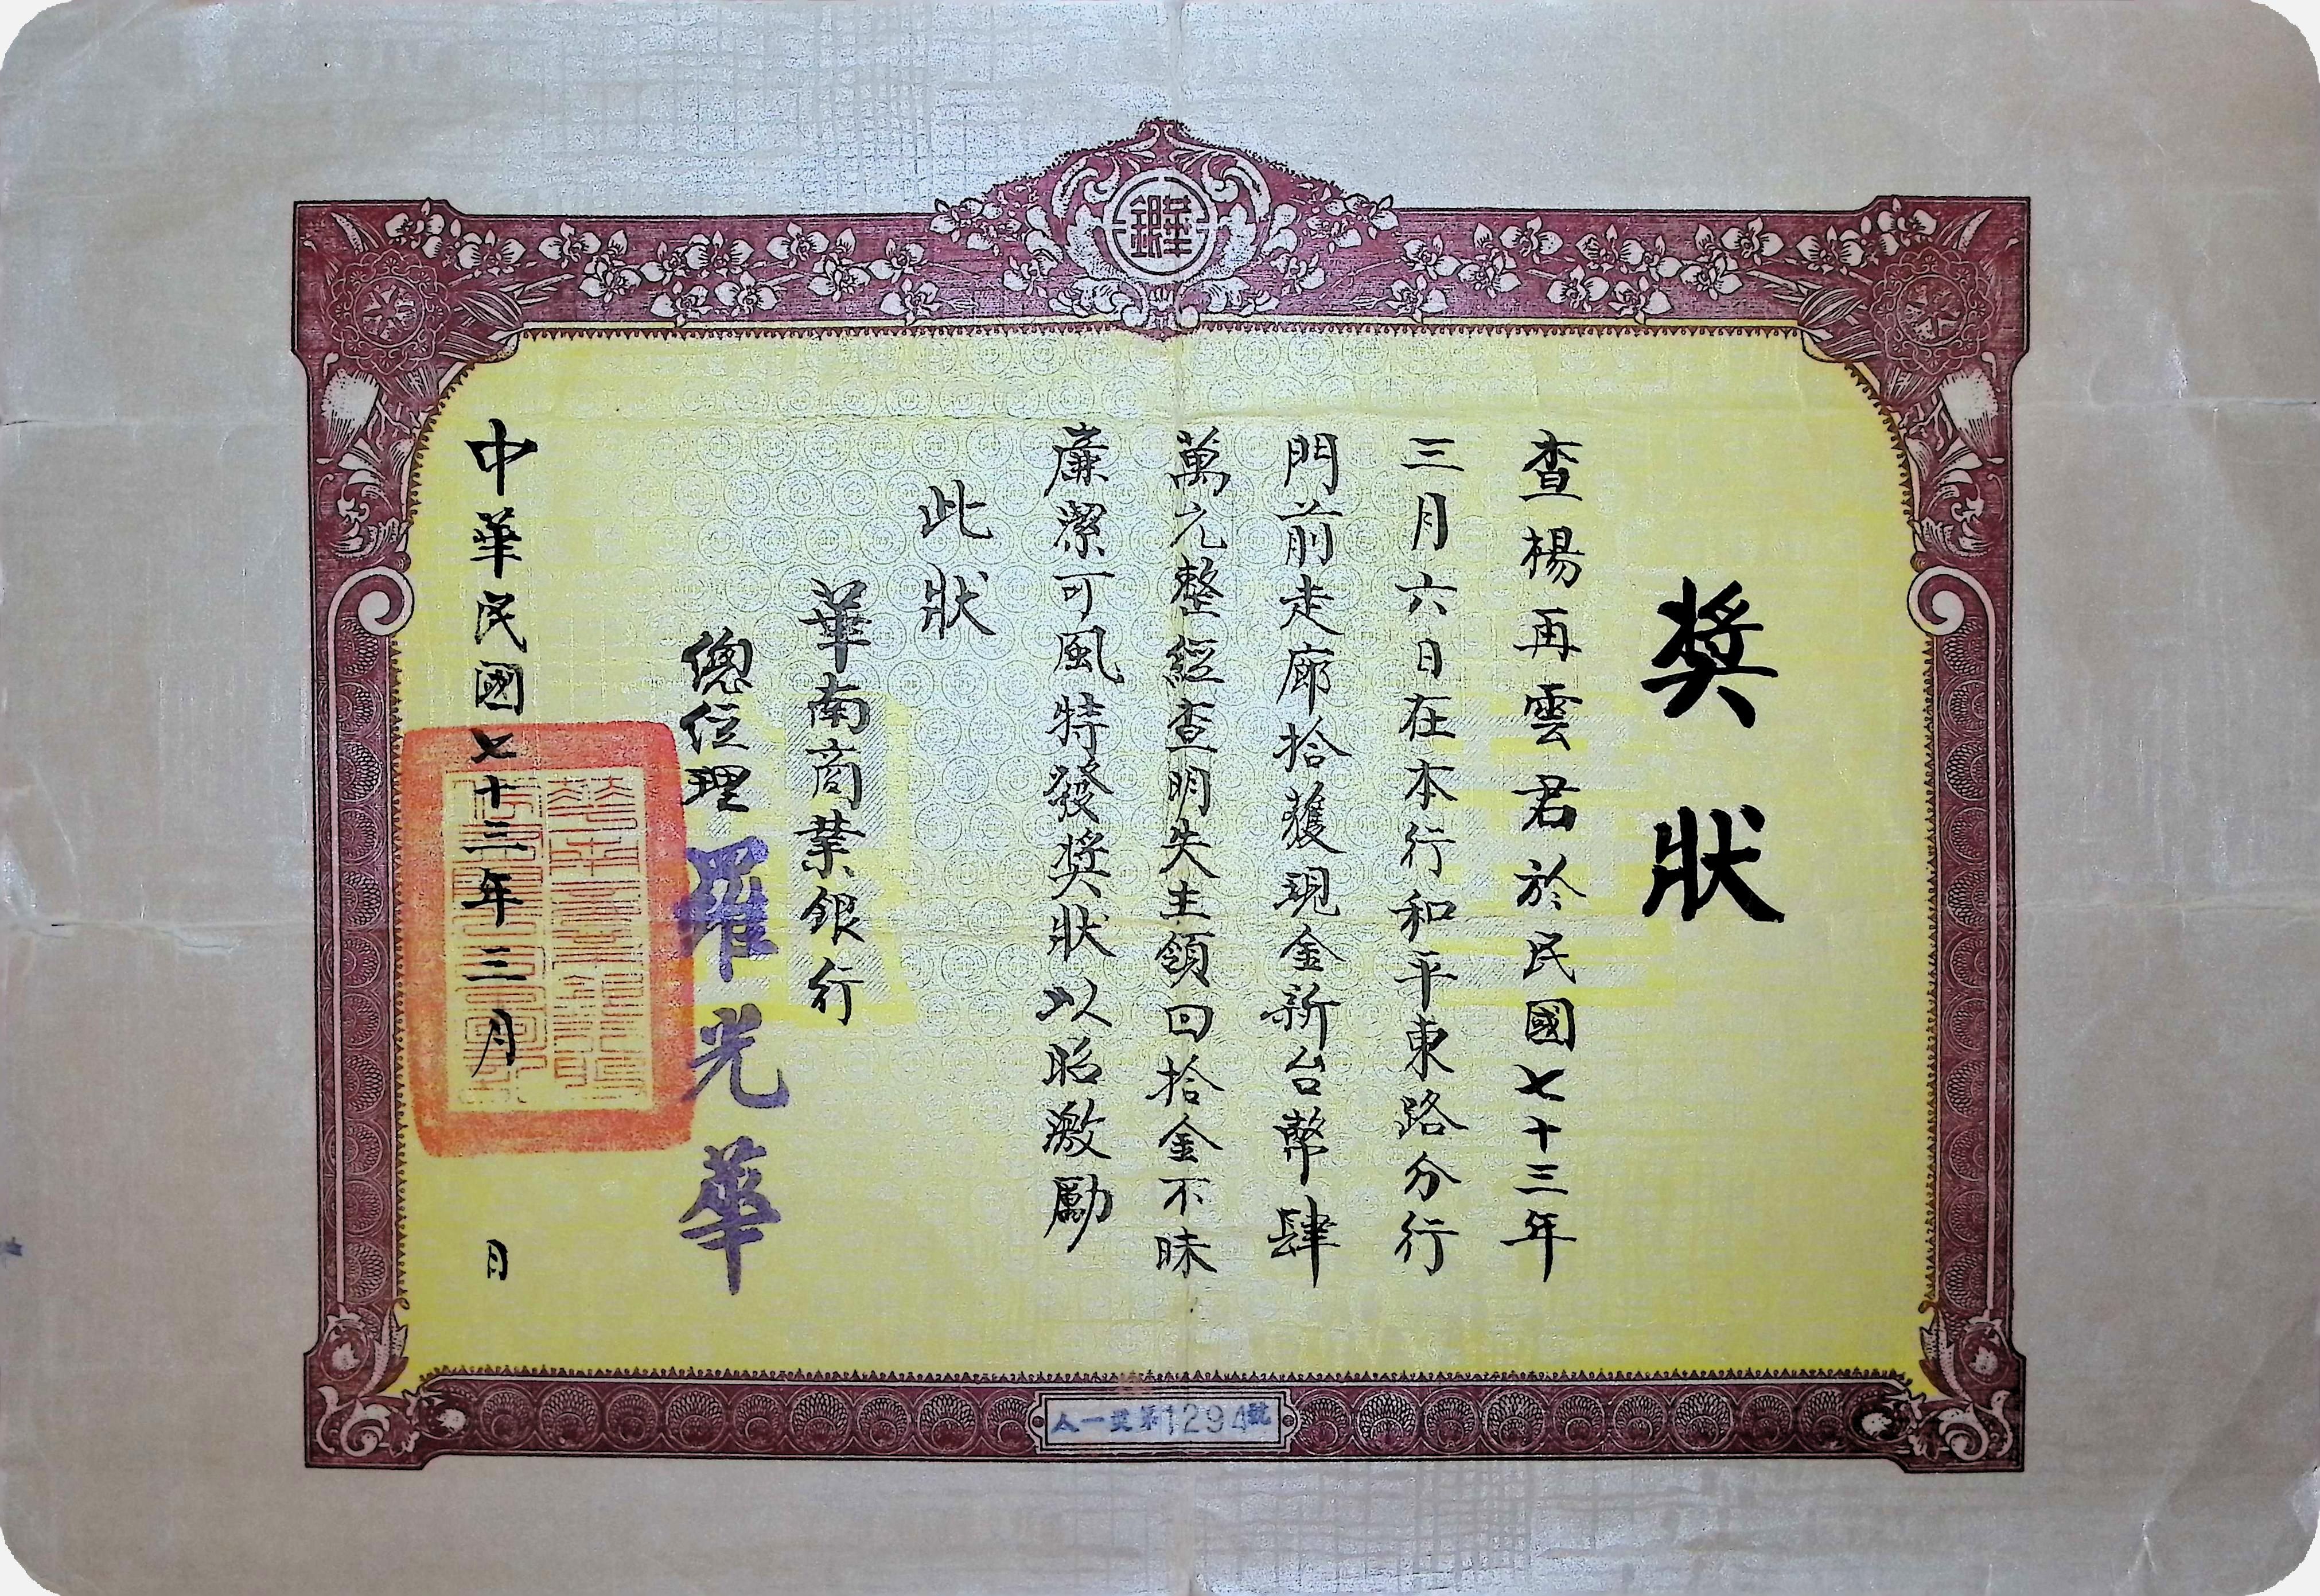 獎狀
查楊再雲君於民國七十三年
三月六日在本行和平東路分行
門前走廊拾獲現金新台幣肆
萬元整經查明失主領回拾金不昧
廉潔可風特發獎狀以昭激勵
此狀
華南商業銀行
總經理 羅光華
中華民國七十三年三月 日
人一獎第1294號
華銀